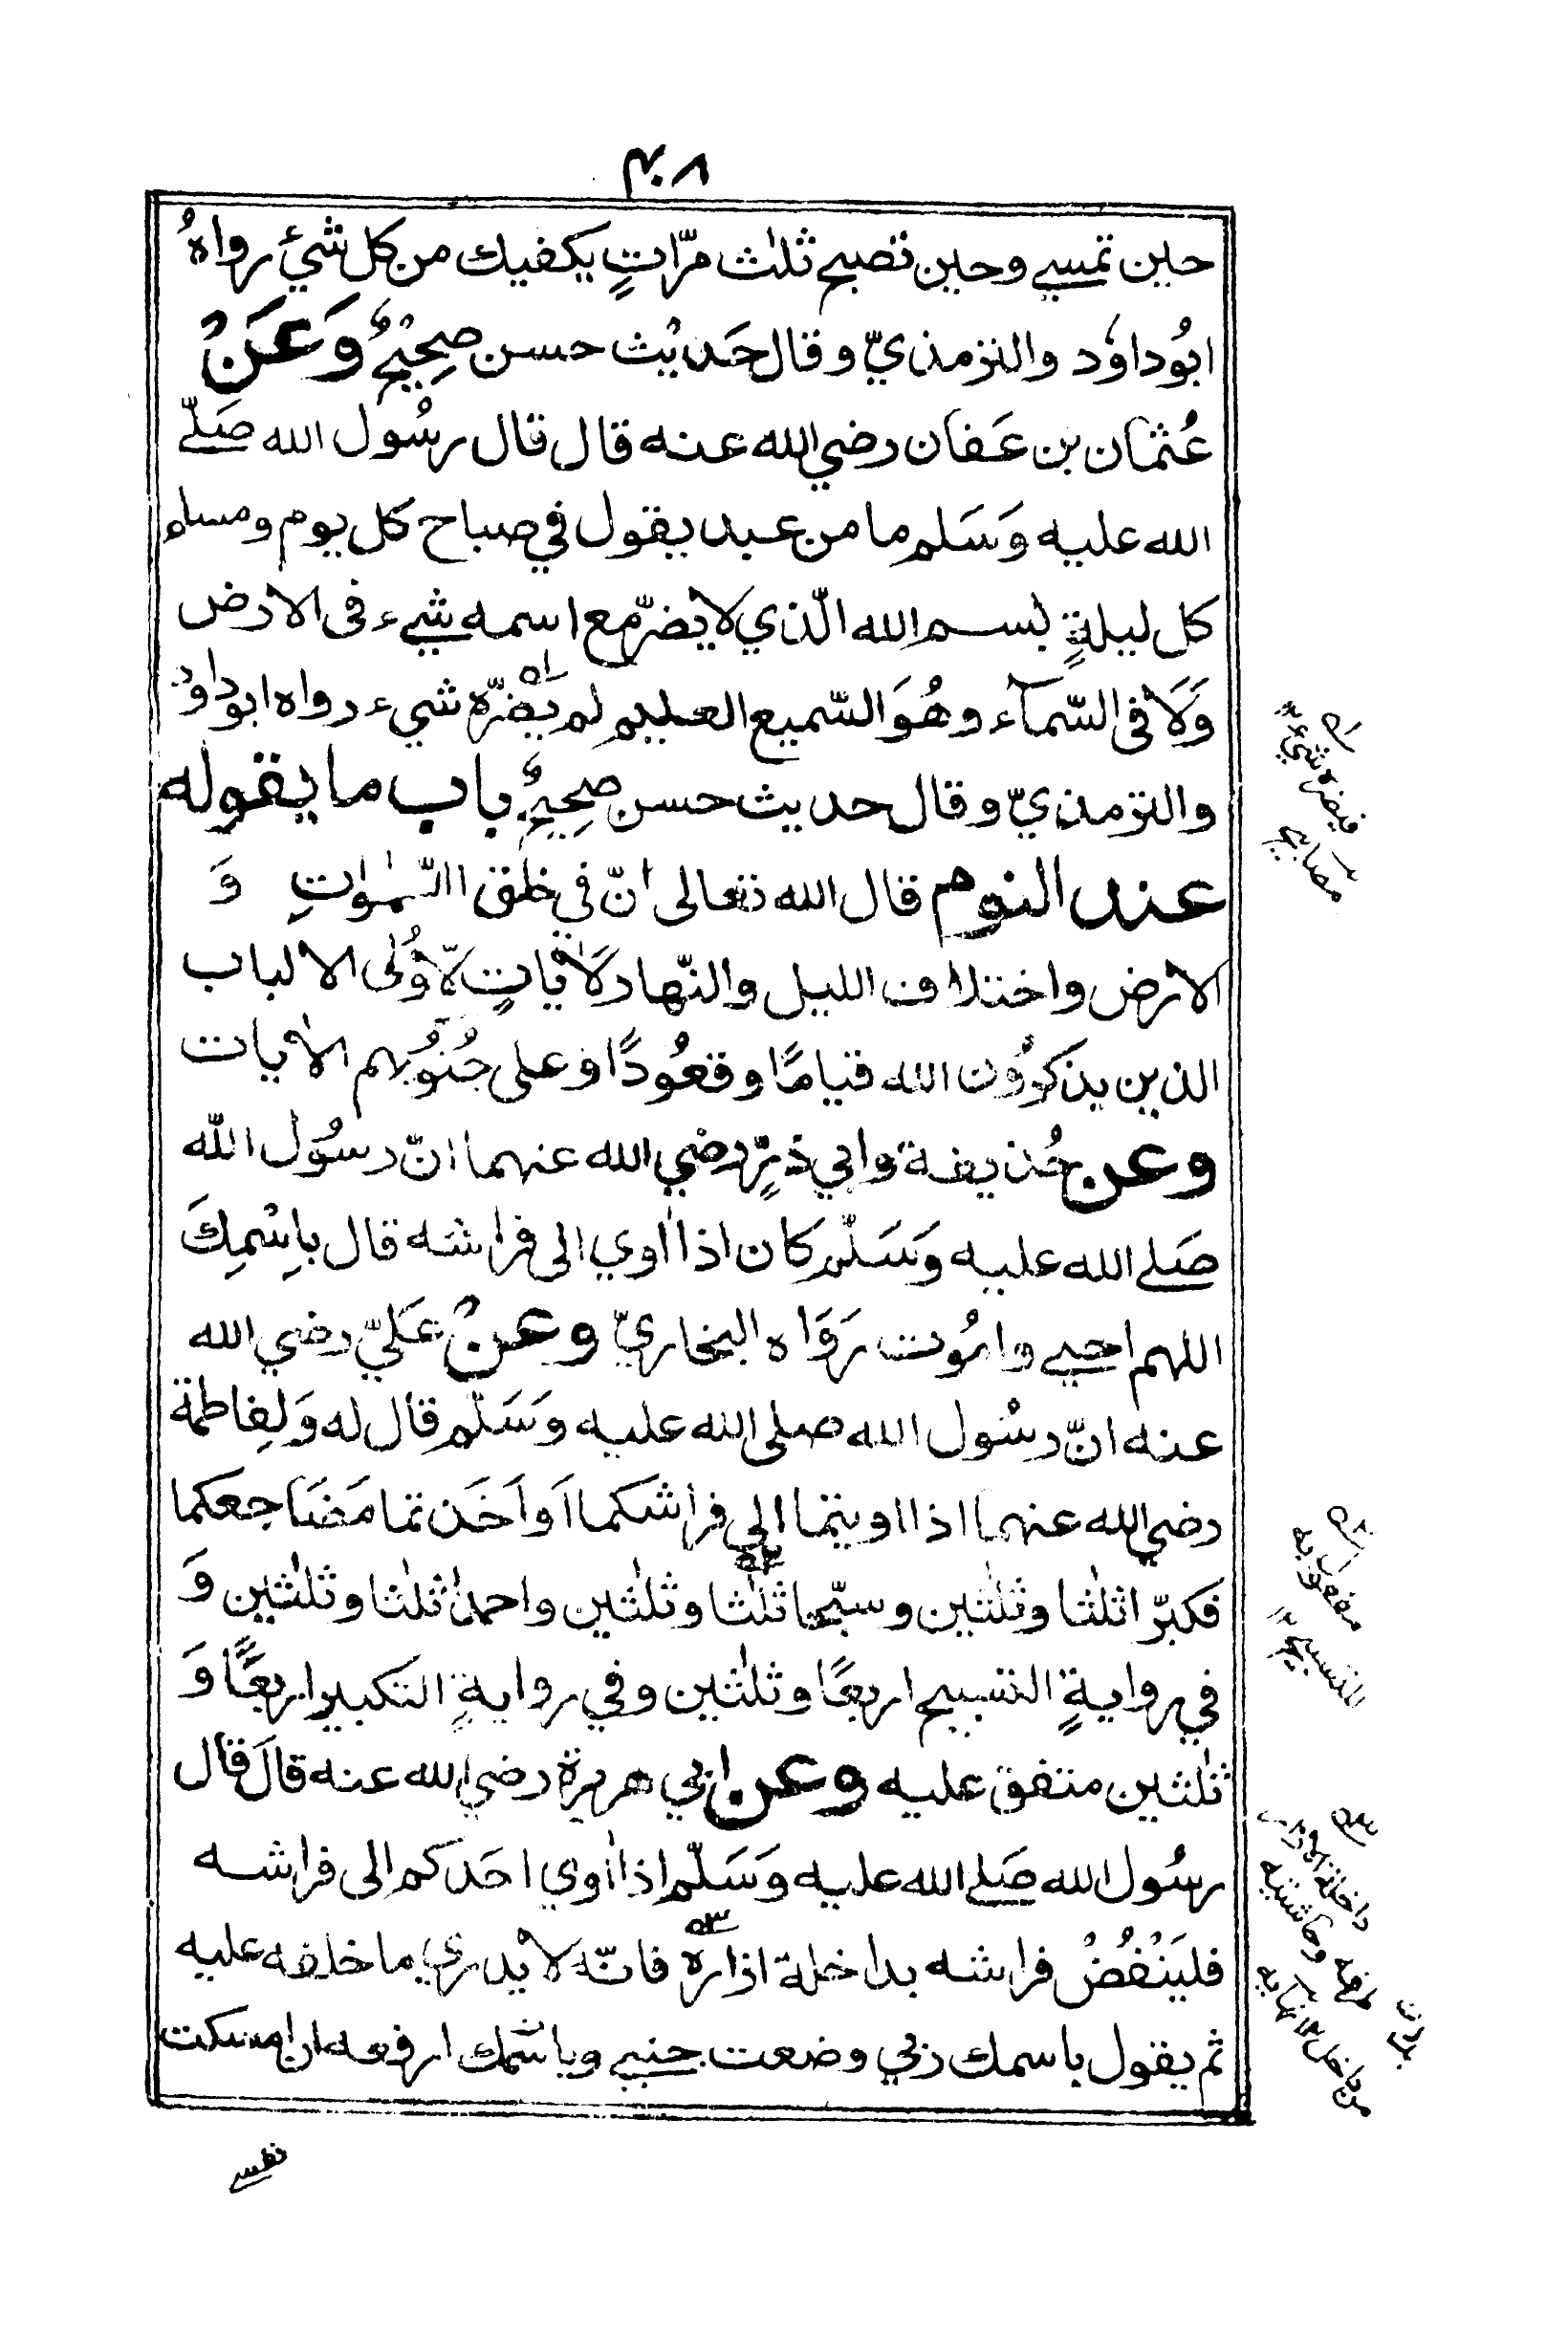 ۴۰۸
حين تمسي وحين تصبح ثلٰث مرّاتٍ يكفيك من كل شئ رواهُ
ابوُداوٗد والترمذيّ وقال حَديْث حسن صحِيْحٌ وَعَنْ
عُثمان بن عَفان رضي الله عنه قال قال رسُول الله صَلّے
الله عليه وَسَلم ما من عبد يقول في صباح كل يوم ومساء
كل ليلةٍ بسم الله الّذي لا يضرّ مع اسمه شيء فى الارض
وَلَا فى السّمآء وهُوَ السّميع العليم لم يضُرّه شيء رواه ابوداوٗد
والترمذيّ وقال حديث حسن صحِيحٌ باب ما يقوله
عند النوم قال الله تعالى انّ في خلق السّمٰوٰتِ وَ
الارض واختلاف الليل والنّهار لَاٰيٰاتٍ لّاُولى الالباب
الذين يذكرُون الله قيامًا وقعُودًا وعلى جُنوُبهم الاٰيات
وعن حُذيفة وابي ذرٍّ رضي الله عنهما انّ رسُول الله
صَلے الله عليه وَسَلّم كان اذا اٰوي الى فراشه قال بِاسْمِكَ
اللهم احيي وامُوت رَوَاه البخاريّ وعنْ عَليّ رضي الله
عنه انّ رسُول الله صلى الله عليه وَسَلّم قال له وَلِفاطمة
رضي الله عنهما اذا اويتما الي فراشكما اَو اَخَذتما مَضَاجعكما
فَكبّرا ثلٰثا وثلٰثين وسبّحا ثلٰثا وثلٰثين واحمدا ثلٰثا وثلٰثين وَ
في روايةٍ التسبيح اربعًا وثلٰثين وفي روايةٍ التكبير اربعًا وَ
ثلٰثين متفق عليه وعن ابي هريرة رضي الله عنه قالَ قال
رسُول الله صَلے الله عليه وَسَلّم اذا اٰوي احَدكم الى فراشه
فليَنْفُضْ فراشه بداخلة ازاره فانّه لا يدري ما خلفه عليه
ثم يقول باسمك ربي وضعت جنبي وباسْمك ارفعه ان امسكت
نفسي
فيضره شيء
مصابيح
مفعول به
للتسبيح
داخلة الازار
طرفه وحاشيته